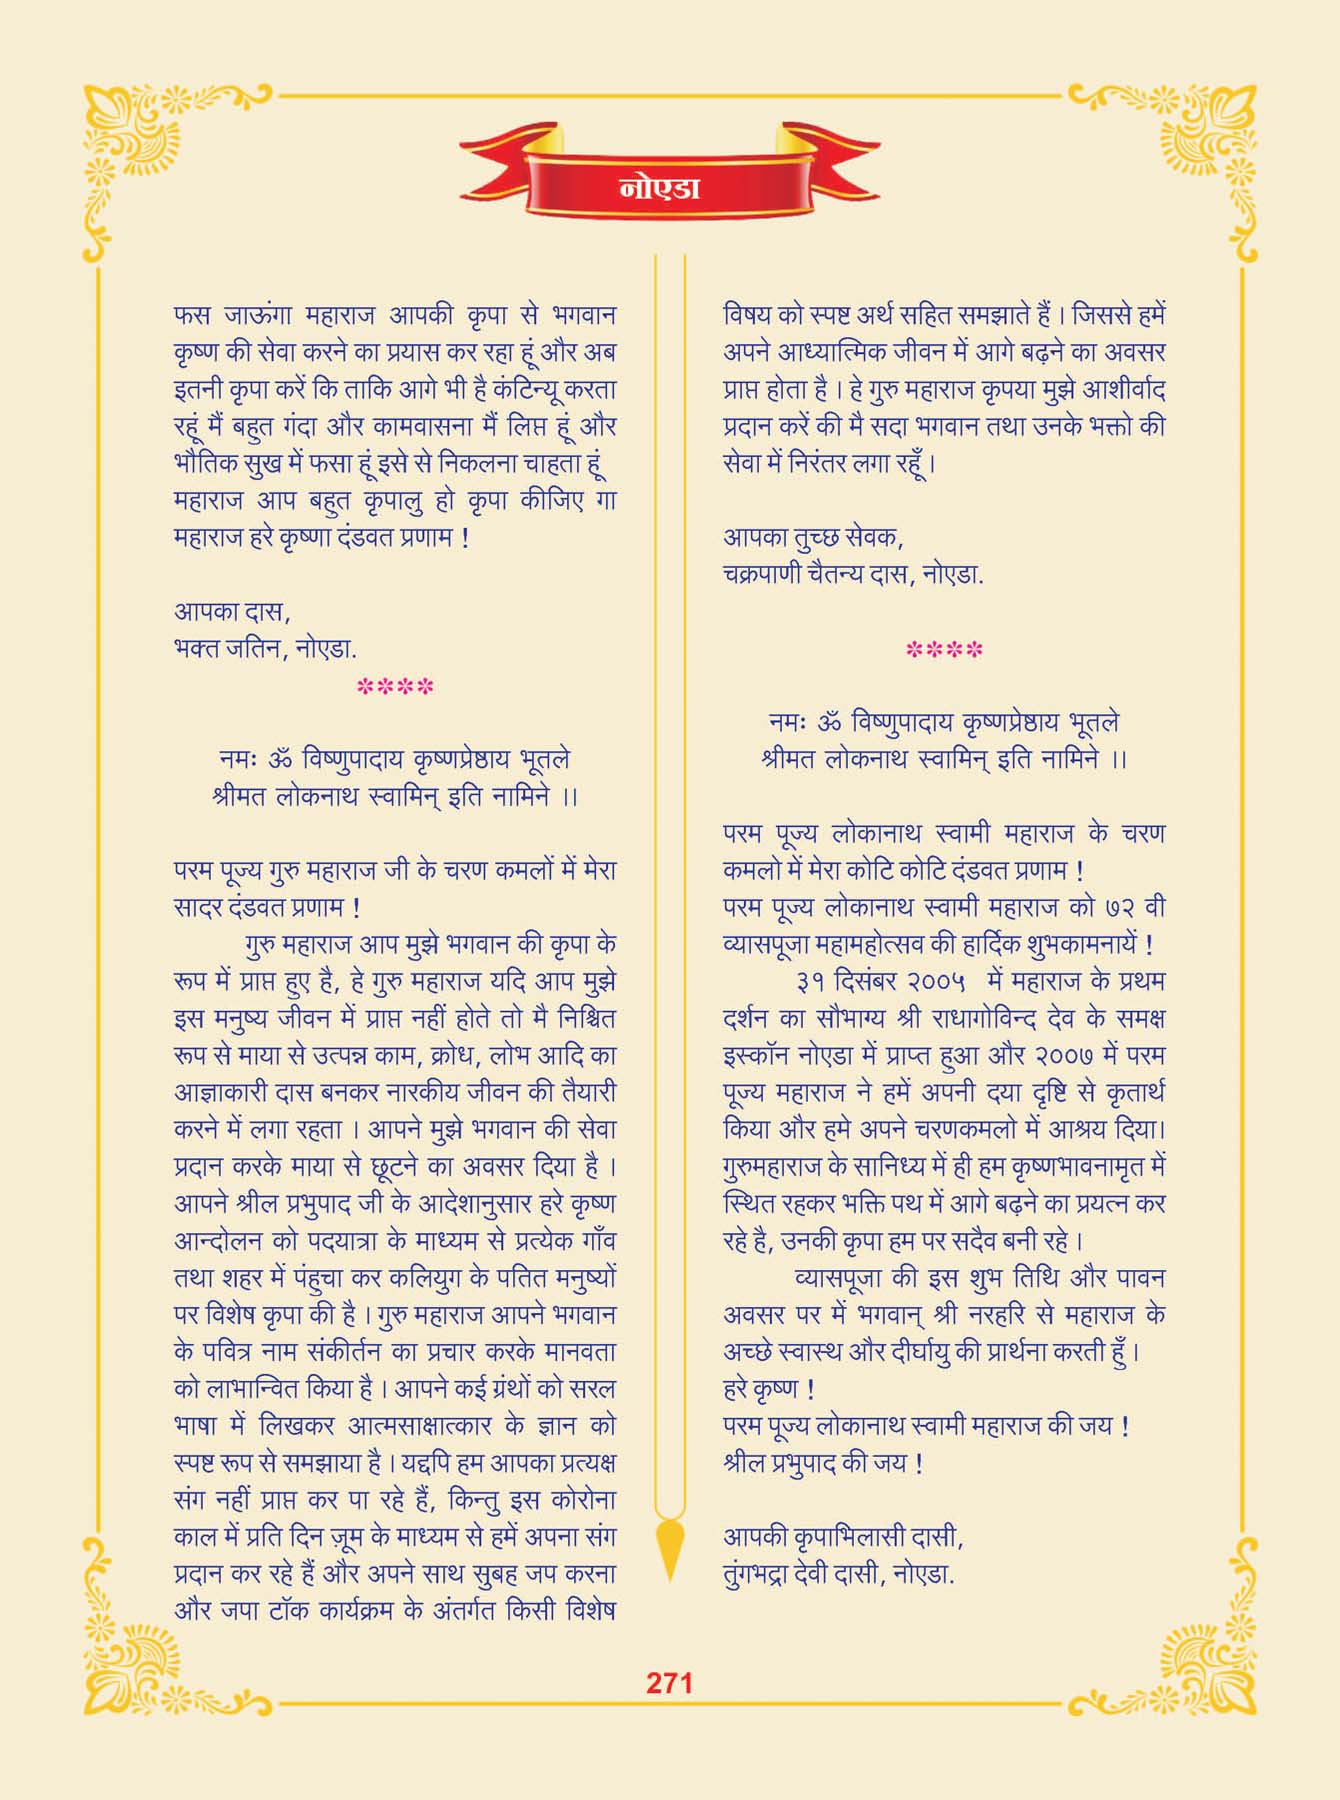 नोएडा
फस जाऊंगा महाराज आपकी कृपा से भगवान
कृष्ण की सेवा करने का प्रयास कर रहा हूं और अब
इतनी कृपा करें कि ताकि आगे भी है कंटिन्यू करता
रहूं मैं बहुत गंदा और कामवासना मैं लिप्त हूं और
भौतिक सुख में फसा हूं इसे से निकलना चाहता हूं
महाराज आप बहुत कृपालु हो कृपा कीजिए गा
महाराज हरे कृष्णा दंडवत प्रणाम !
आपका दास,
भक्त जतिन, नोएडा.
****
नमः ॐ विष्णुपादाय कृष्णप्रेष्ठाय भूतले
श्रीमत लोकनाथ स्वामिन् इति नामिने ।।
परम पूज्य गुरु महाराज जी के चरण कमलों में मेरा
सादर दंडवत प्रणाम !
गुरु महाराज आप मुझे भगवान की कृपा के
रूप में प्राप्त हुए है, हे गुरु महाराज यदि आप मुझे
इस मनुष्य जीवन में प्राप्त नहीं होते तो मै निश्चित
रूप से माया से उत्पन्न काम, क्रोध, लोभ आदि का
आज्ञाकारी दास बनकर नारकीय जीवन की तैयारी
करने में लगा रहता । आपने मुझे भगवान की सेवा
प्रदान करके माया से छूटने का अवसर दिया है ।
आपने श्रील प्रभुपाद जी के आदेशानुसार हरे कृष्ण
आन्दोलन को पदयात्रा के माध्यम से प्रत्येक गाँव
तथा शहर में पंहुचा कर कलियुग के पतित मनुष्यों
पर विशेष कृपा की है । गुरु महाराज आपने भगवान
के पवित्र नाम संकीर्तन का प्रचार करके मानवता
को लाभान्वित किया है । आपने कई ग्रंथों को सरल
भाषा में लिखकर आत्मसाक्षात्कार के ज्ञान को
स्पष्ट रूप से समझाया है । यद्दपि हम आपका प्रत्यक्ष
संग नहीं प्राप्त कर पा रहे हैं, किन्तु इस कोरोना
काल में प्रति दिन ज़ूम के माध्यम से हमें अपना संग
प्रदान कर रहे हैं और अपने साथ सुबह जप करना
और जपा टॉक कार्यक्रम के अंतर्गत किसी विशेष
विषय को स्पष्ट अर्थ सहित समझाते हैं । जिससे हमें
अपने आध्यात्मिक जीवन में आगे बढ़ने का अवसर
प्राप्त होता है । हे गुरु महाराज कृपया मुझे आशीर्वाद
प्रदान करें की मै सदा भगवान तथा उनके भक्तो की
सेवा में निरंतर लगा रहूँ ।
आपका तुच्छ सेवक,
चक्रपाणी चैतन्य दास, नोएडा.
****
नमः ॐ विष्णुपादाय कृष्णप्रेष्ठाय भूतले
श्रीमत लोकनाथ स्वामिन् इति नामिने ।।
परम पूज्य लोकानाथ स्वामी महाराज के चरण
कमलो में मेरा कोटि कोटि दंडवत प्रणाम !
परम पूज्य लोकानाथ स्वामी महाराज को ७२ वी
व्यासपूजा महामहोत्सव की हार्दिक शुभकामनायें !
३१ दिसंबर २००५ में महाराज के प्रथम
दर्शन का सौभाग्य श्री राधागोविन्द देव के समक्ष
इस्कॉन नोएडा में प्राप्त हुआ और २००७ में परम
पूज्य महाराज ने हमें अपनी दया दृष्टि से कृतार्थ
किया और हमे अपने चरणकमलो में आश्रय दिया।
गुरुमहाराज के सानिध्य में ही हम कृष्णभावनामृत में
स्थित रहकर भक्ति पथ में आगे बढ़ने का प्रयत्न कर
रहे है, उनकी कृपा हम पर सदैव बनी रहे ।
व्यासपूजा की इस शुभ तिथि और पावन
अवसर पर में भगवान् श्री नरहरि से महाराज के
अच्छे स्वास्थ और दीर्घायु की प्रार्थना करती हुँ ।
हरे कृष्ण !
परम पूज्य लोकानाथ स्वामी महाराज की जय !
श्रील प्रभुपाद की जय !
आपकी कृपाभिलासी दासी,
तुंगभद्रा देवी दासी, नोएडा.
271